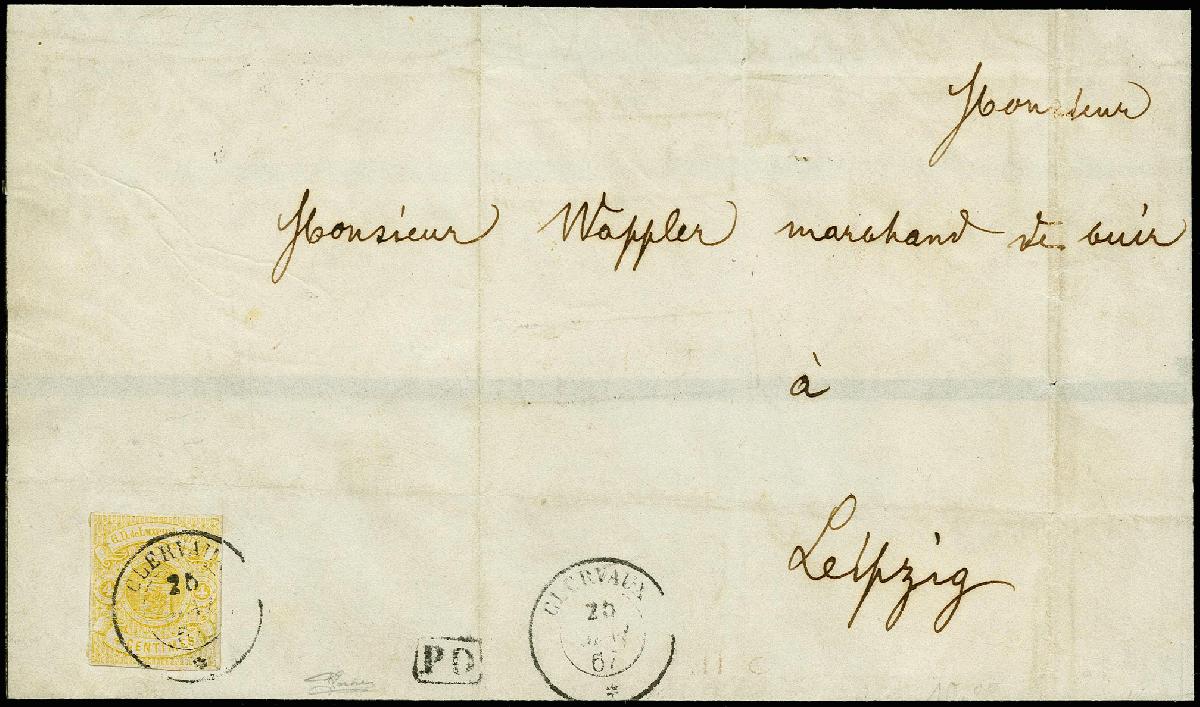 Monsieur
Monsieur Wappler marchand de cuir
à
Leipzig
G.D. de
CLERVAUX
20
CENTIMES
P D
CLERVAUX
20
67